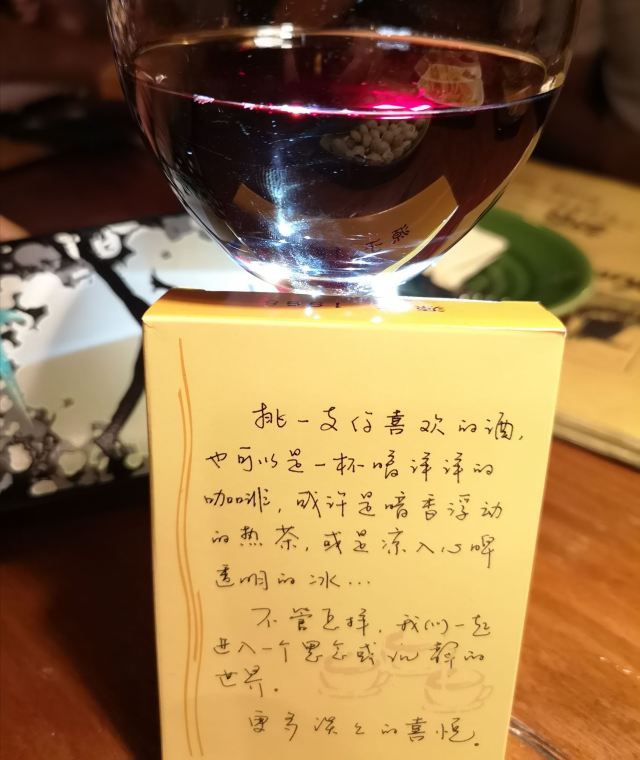 1595
挑一支你喜欢的酒,
也可以是一杯暖洋洋的
咖啡,或许是暗香浮动
的热茶,或是凉入心脾
透明的冰...
不管怎样,我们一起
进入一个思念或沉静的
世界。
更多淡淡的喜悦。